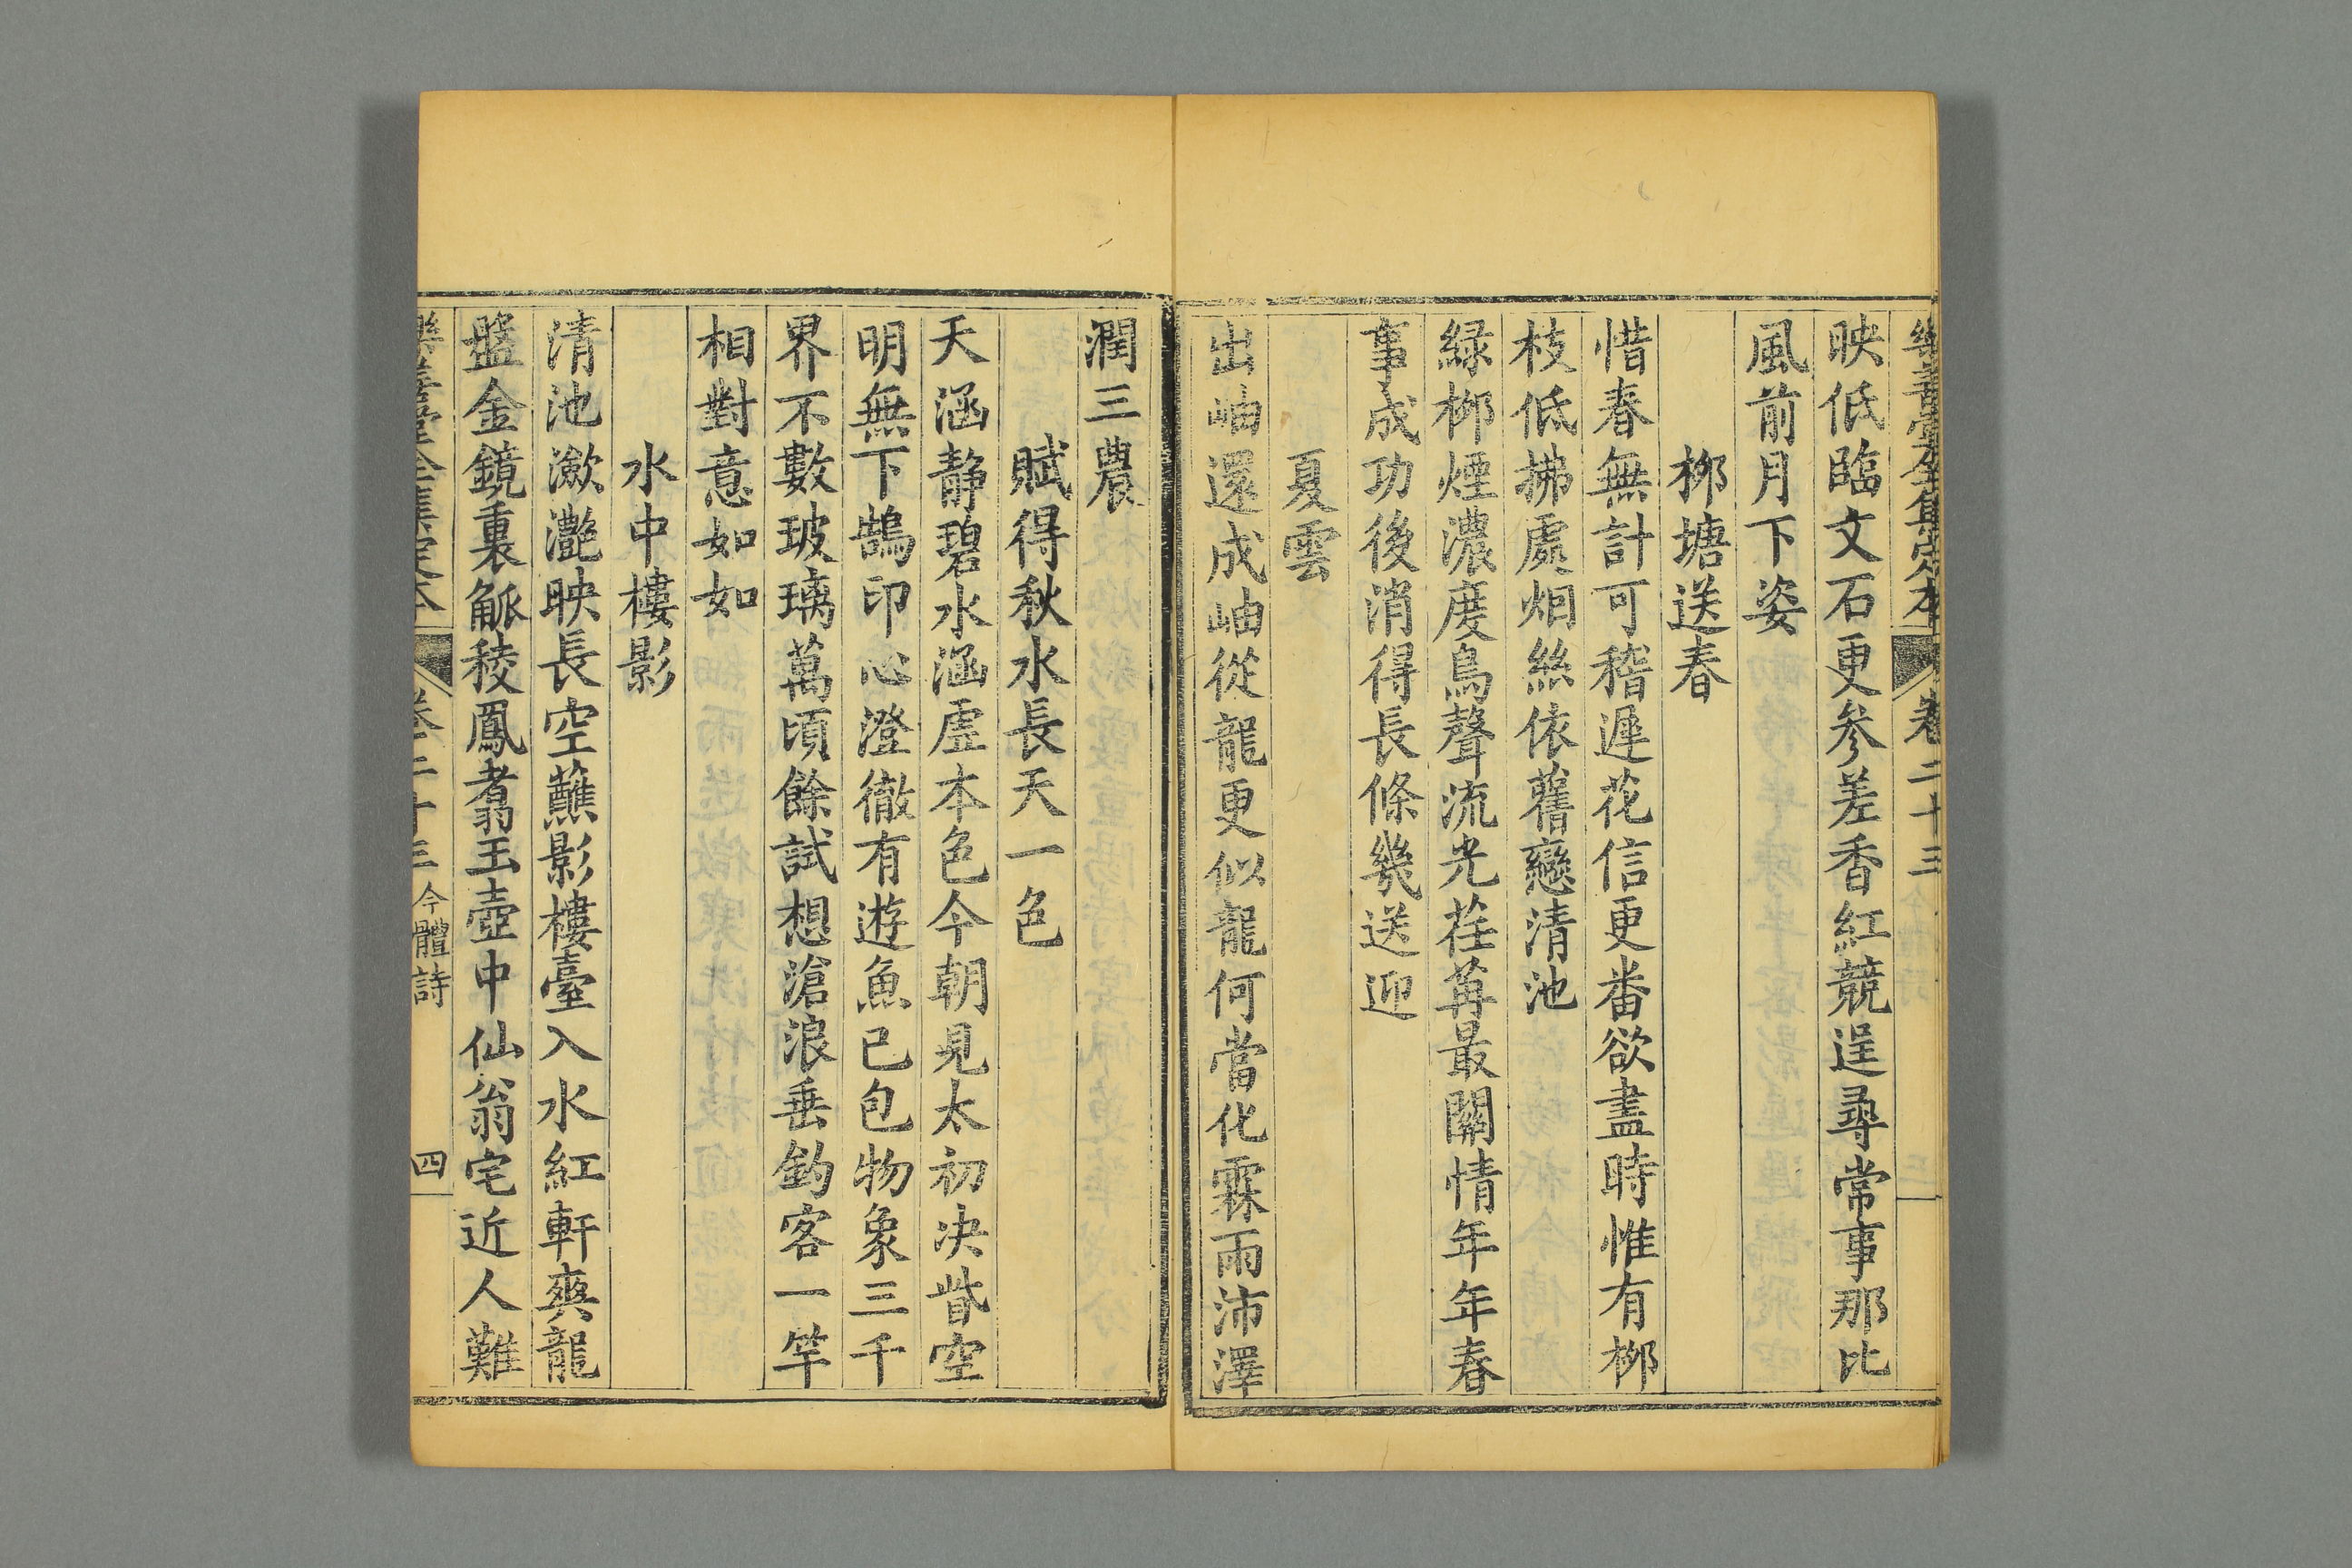 樂善堂全集定本 卷二十三
映低臨文石更參差香紅競逞尋常事那比
風前月下姿
柳塘送春
惜春無計可稽遲花信更番欲盡時惟有柳
枝低拂處烟絲依舊戀清池
綠柳煙濃度鳥聲流光荏苒最關情年年春
事成功後消得長條幾送迎
夏雲
出岫還成岫從龍更似龍何當化霖雨沛澤
潤三農
賦得秋水長天一色
天涵靜碧水涵虛本色今朝見太初決眥空
明無下鵠印心澄徹有遊魚已包物象三千
界不數玻璃萬頃餘試想滄浪垂釣客一竿
相對意如如
水中樓影
清池瀲灧映長空蘸影樓臺入水紅軒爽龍
盤金鏡裏觚稜鳳翥玉壺中仙翁宅近人難
樂善堂全集定本 卷二十三 今體詩 四